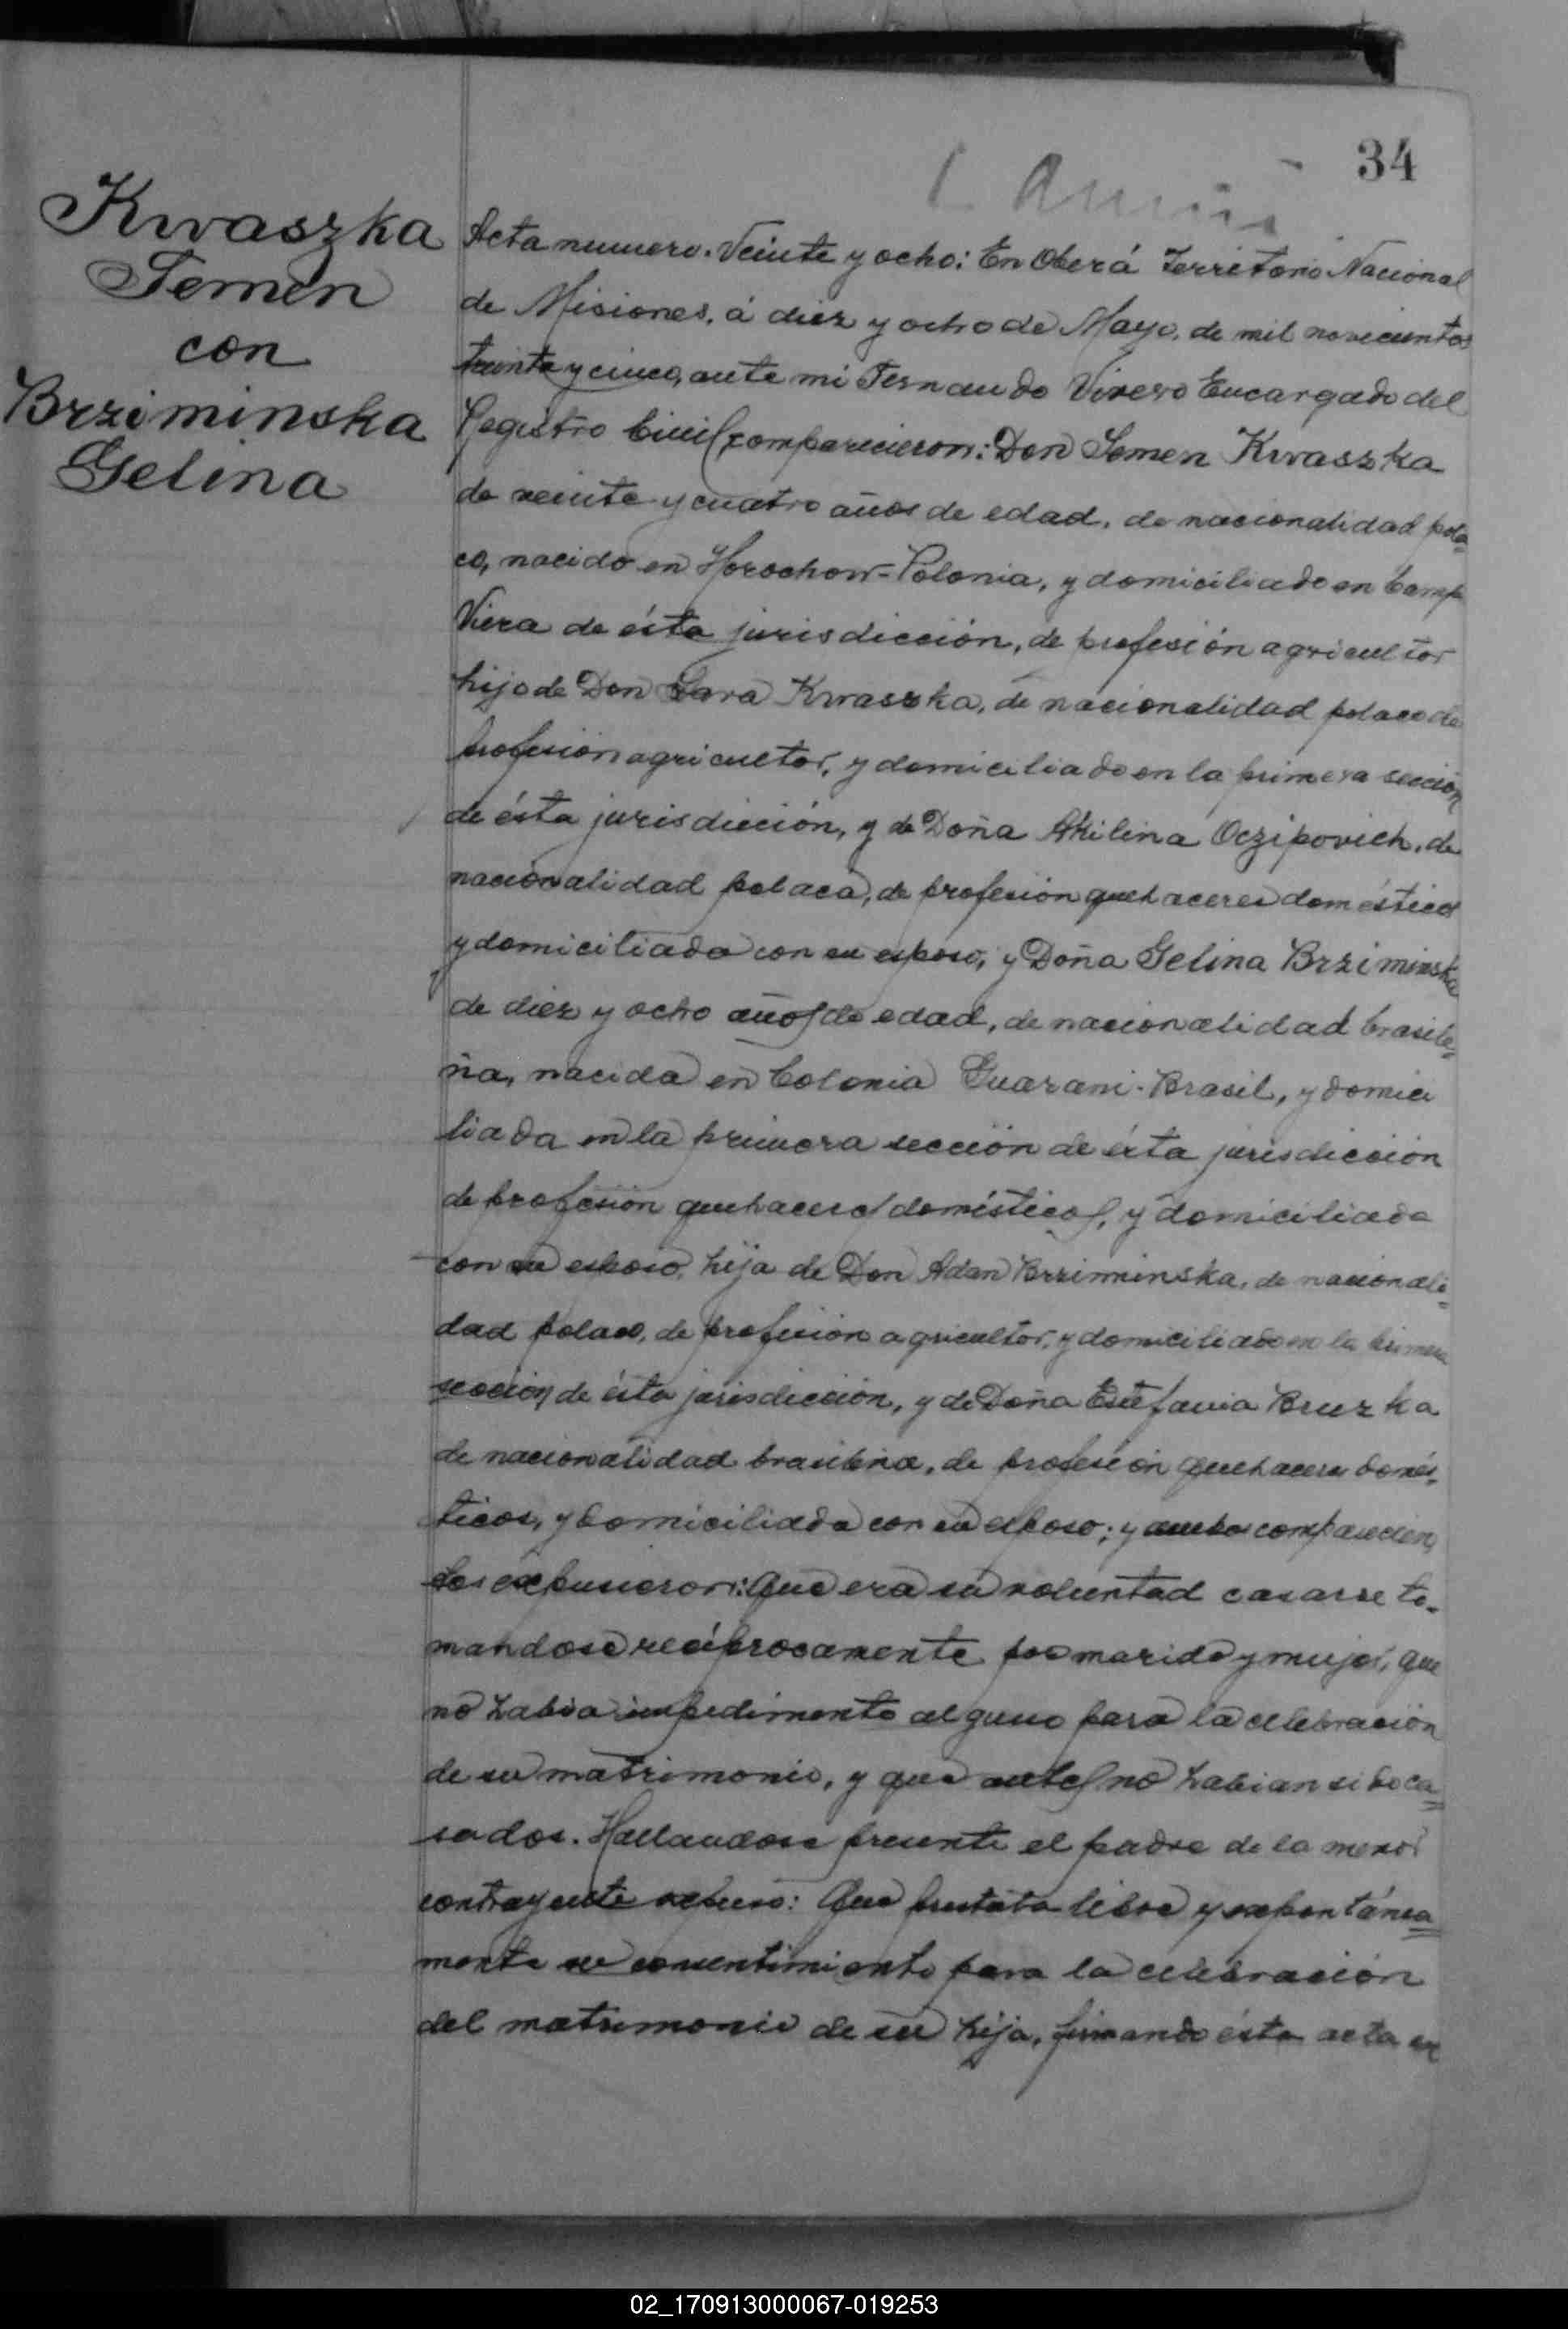 34
Kwaszka
Semen
con
Brziminska
Gelina
Acta numero. Veinte y ocho: En Oberá Territorio Nacional
de Misiones, á diez y ocho de Mayo, de mil novecientos
treinta y cinco, ante mi Fernando Vivero Encargado del
Registro Civil comparecieron: Don Semen Kwaszka
de veinte y cuatro años de edad, de nacionalidad pola=
co, nacido en Horochow-Polonia, y domiciliado en Campo
Viera de ésta jurisdicción, de profesión agricultor
hijo de Don Sava Kwaszka, de nacionalidad polaco de
profesión agricultor, y domiciliado en la primera sección
de ésta jurisdicción, y de Doña Akilina Oczipovich, de
nacionalidad polaca, de profesión quehaceres domésticos
y domiciliada con su esposo; y Doña Gelina Brziminska
de diez y ocho años de edad, de nacionalidad brasile=
ña, nacida en Colonia Guarani-Brasil, y domici
liada en la primera sección de ésta jurisdicción
de profesión quehaceres domésticos, y domiciliada
con su esposo, hija de Don Adan Brziminska, de nacionali=
dad polaco, de profesión agricultor, y domiciliado en la primera
sección de ésta jurisdicción, y de Doña Estefania Bruzka
de nacionalidad brasileña, de profesión quehaceres domés=
ticos, y domiciliada con su esposo; y ambos comparecien
tes expusieron: Que era su voluntad casarse to=
mandose reciprocamente por marido y mujer, que
no habia impedimento alguno para la celebración
de su matrimonio, y que antes no habian sido ca=
sados. Hallandose presente el padre de la menor
contrayente expuso: Que prestaba libre y expontánea=
mente su consentimiento para la celebración
del matrimonio de su hija, firmando ésta acta en
02_170913000067-019253